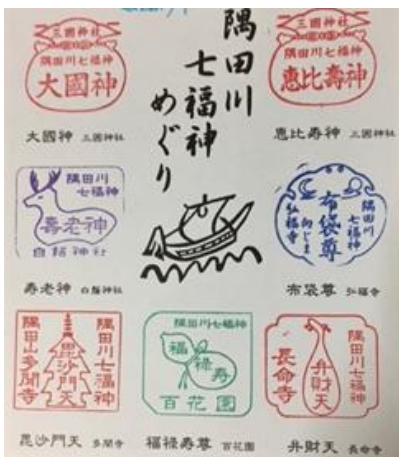 隅田川
七福神
めぐり
三圍神社
隅田川七福神
大國神
大國神 三圍神社
三圍神社
隅田川七福神
恵比壽神
恵比寿神 三圍神社
隅田川
七福神
壽老神
白鬚神社
寿老神 白鬚神社
隅田川
七福神
布袋尊
向じま
弘福寺
布袋尊 弘福寺
隅田川七福神
毘沙門天
隅田山多聞寺
毘沙門天 多聞寺
隅田川七福神
福
禄
寿
百花園
福禄寿尊 百花園
隅田川七福神
弁財天
長命寺
弁財天 長命寺